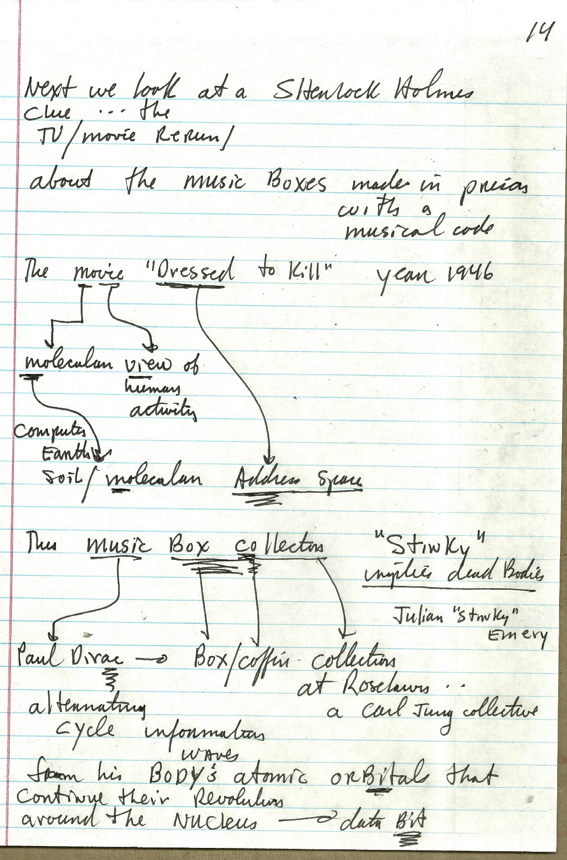 14
Next we look at a SHerlock Holmes
clue ... the
TV/movie Rerun/
about the music Boxes made in prison
with a
musical code
The movie "Dressed to Kill" year 1946
molecular view of
human
activity
Computer
Earth
Soil/molecular Address Space
This music Box collector "Stinky"
implies dead Bodies
Julian "Stinky"
Emery
Paul Dirac → Box/coffin collection
at Roselawn ..
alternating a Carl Jung collective
cycle information
waves
from his BODY's atomic orBitals that
continue their Revolution
around the Nucleus → data Bit